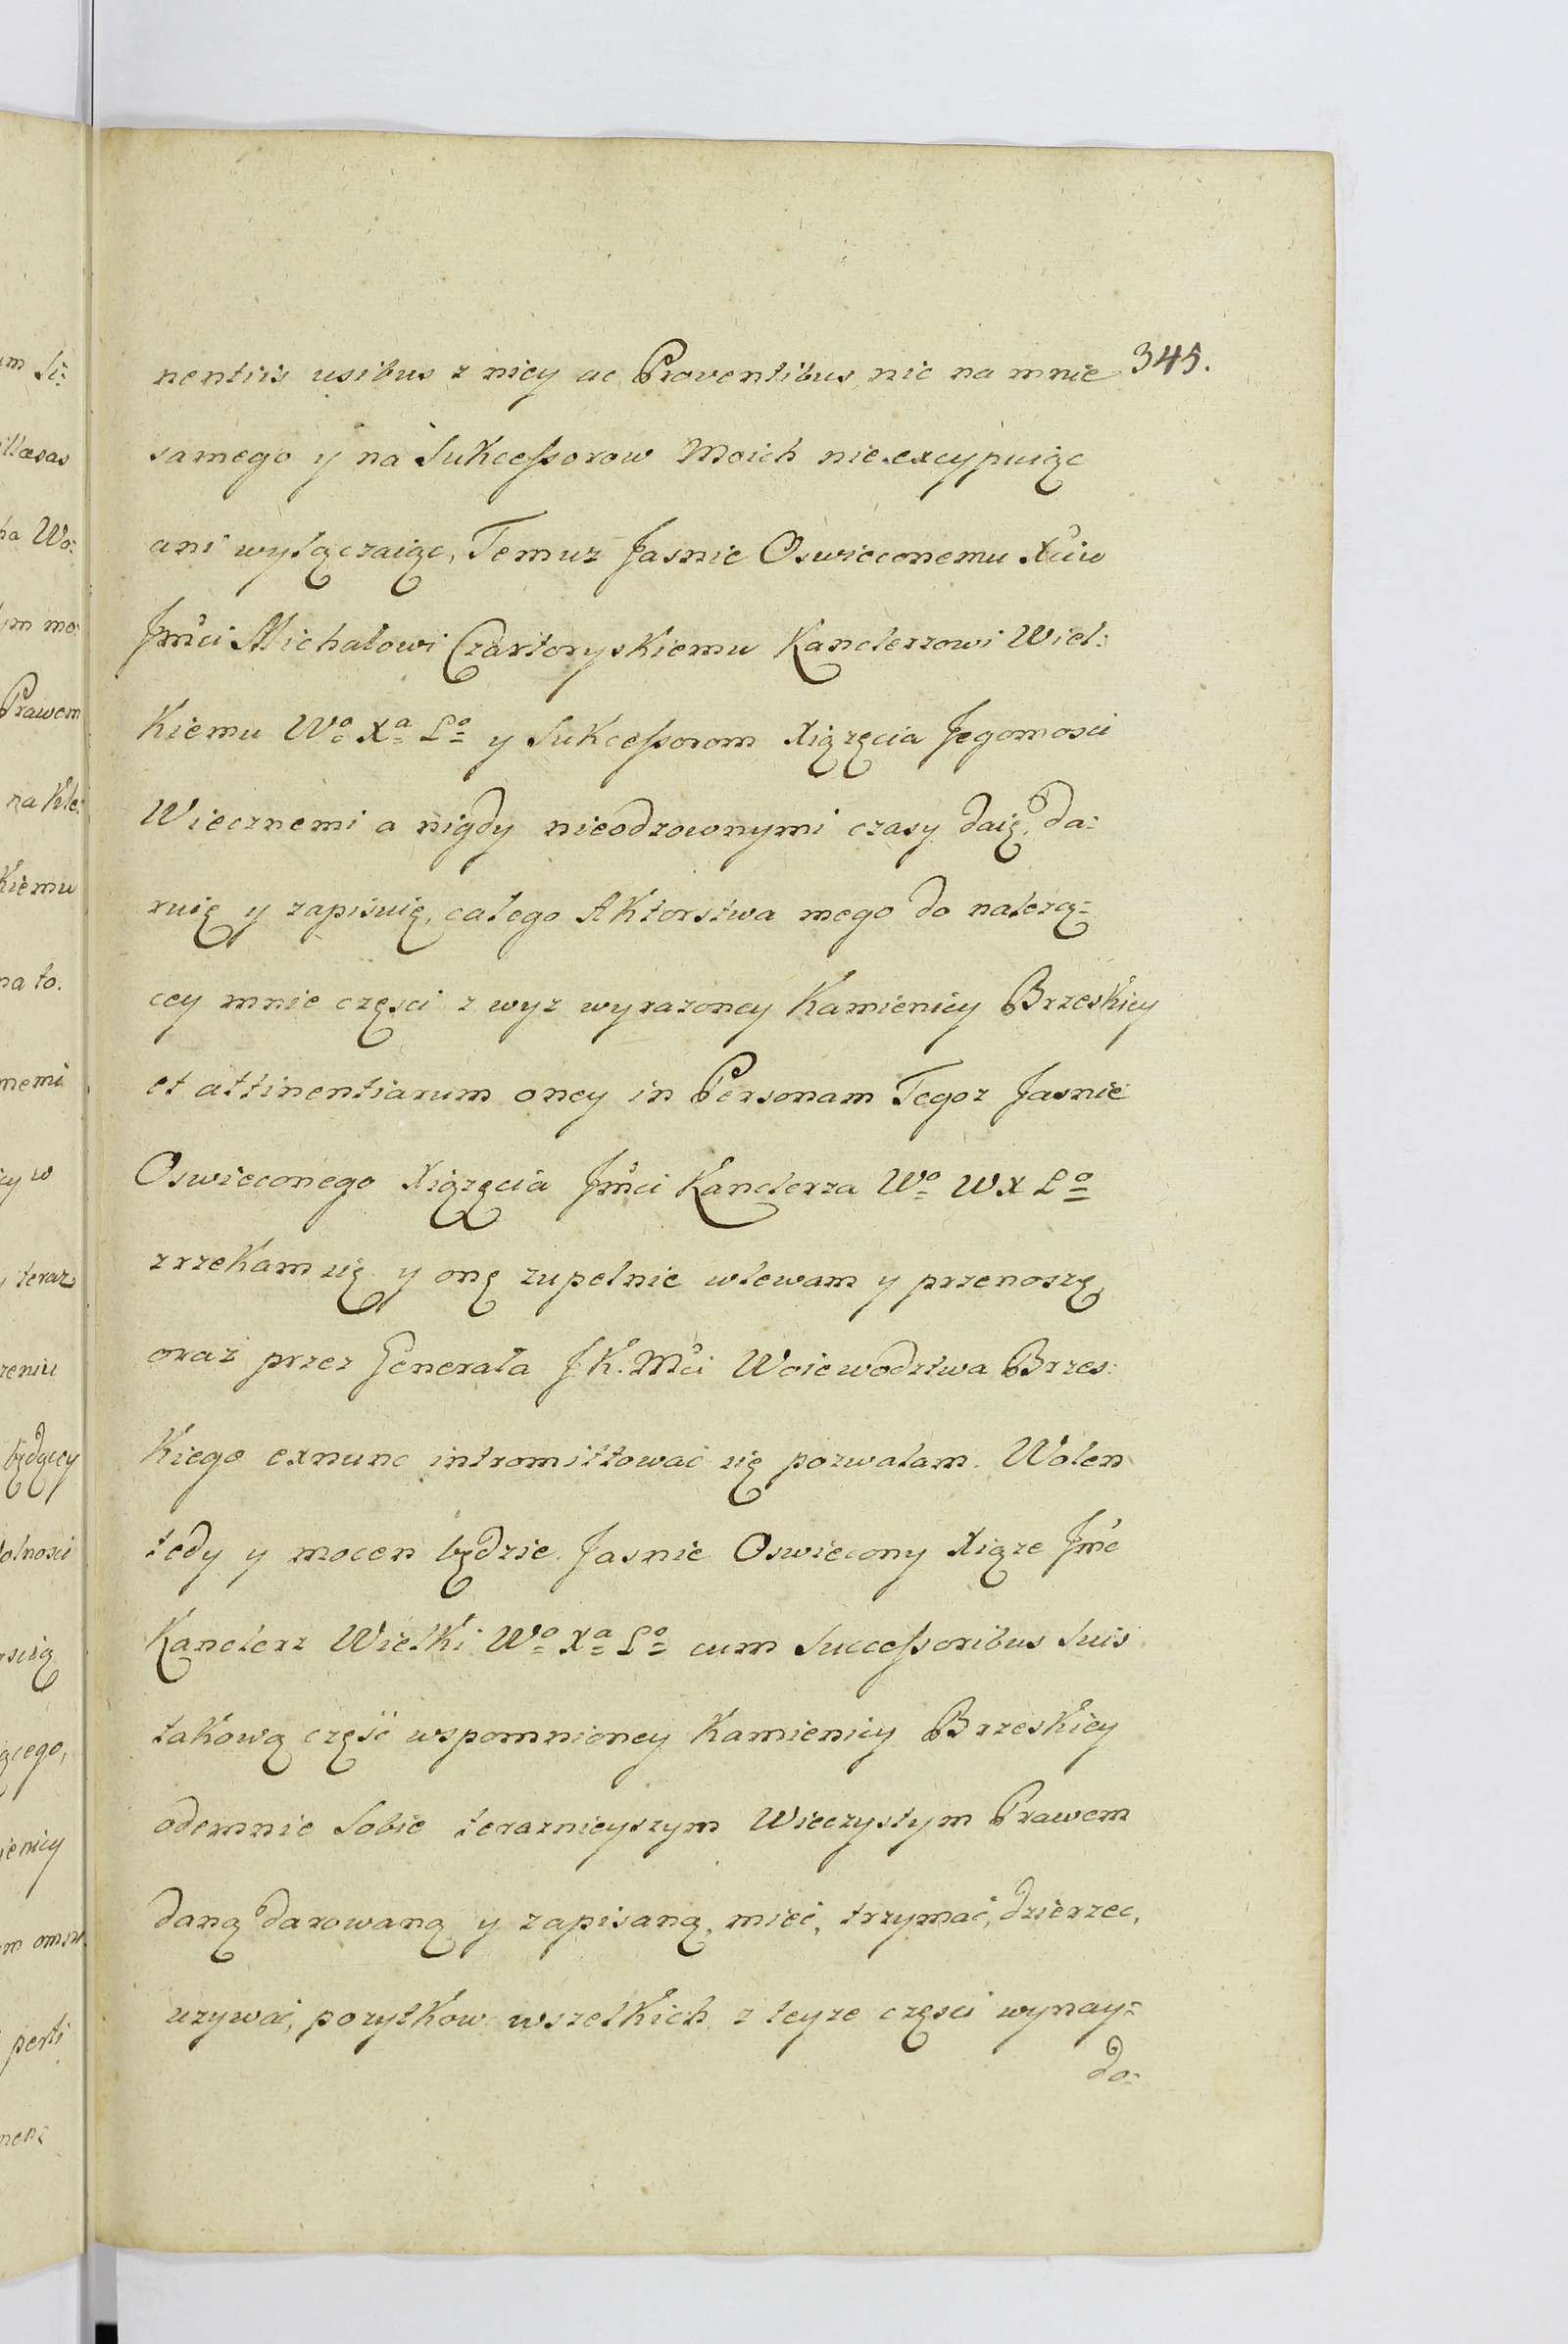 345.
nentiis usibus z niey ac Proventibus, nic na mnie
samego y na Sukcessorow Moich nie excypuiąc
ani wyłączaiąc, Temuz Jasnie Oswieconemu Xciu
Jmci Michałowi Czartoryskiemu Kanclerzowi Wiel:
kiemu Wo Xa Lo y Sukcessorom Xiązęcia Jegomosci
Wiecznemi a nigdy nieodzownymi czasy daię, da:
ruię y zapisuię, całego Aktorstwa mego do nalezą=
cey mnie częsci z wyz wyrazoney Kamienicy Brzeskiey
et attinentiarum oney in Personam Tegoz Jasnie
Oswieconego Xiązęcia Jmci Kanclerza Wo W X Lo
zrzekam się y onę zupełnie wlewam y przenoszę,
oraz przez Generała J K. Mci Woiewodztwa Brzes:
kiego exnunc intromittować się pozwalam. Wolen
tedy y mocen będzie Jasnie Oswiecony Xiąze Jmc
Kanclerz Wielki Wo Xa Lo cum Successoribus Suis
takową część wspomnioney Kamienicy Brzeskiey
odemnie Sobie teraznieyszym Wieczystym Prawem
daną darowaną y zapisaną, mieć, trzymać, dzierzec,
uzywać, pozytkow wszelkich z teyze częsci wynay=
do:
im Si:
illæsas
na Wo:
ym mo:
Prawem
na Kle:
kiemu
na to.
nemi
icy w
y teraz:
zeniu
będący
olnosci
scią
ącego,
ienicy
m omni
perti
nenz